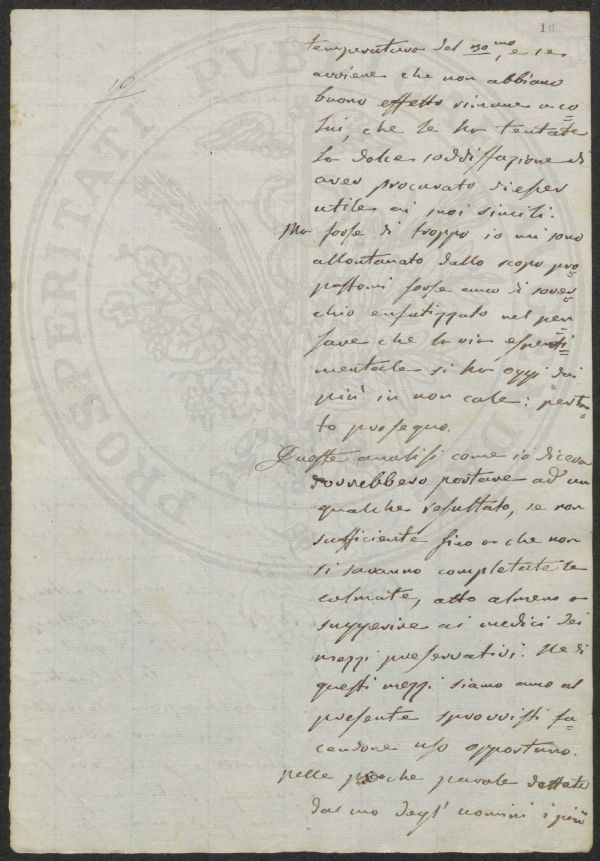 10
10
temperatura del 30.mo, e se
avviene che non abbiano
buono effetto rimane a co=
lui, che le ha tentate
la dolce soddisfazione di
aver procurato di esser
utile ai suoi simili.
Ma forse di troppo io mi sono
allontanato dallo scopo pro=
postomi forse anco di sover=
chio enfatizzato nel pen=
sare che la via esperi=
mentale si ha oggi dai
più in non cale: pertan=
to proseguo.
Queste analisi come io diceva
dovrebbero portare ad un
qualche resultato, se non
sufficiente fino a che non
si saranno completate le
colmate, atto almeno a
suggerire ai medici dei
mezzi preservativi. Ne di
questi mezzi siamo anco al
presente sprovvisti fa=
cendone uso opportuno.
Nelle poche parole dettate
dal uno degl' uomini i più
PROSPERITATI PVBLICAE